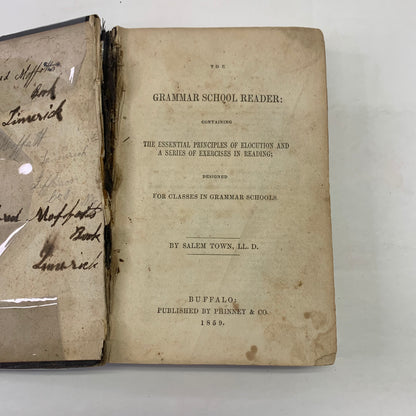 red Moffatts
Book
Limerick
Moffatt
red Moffatts
Book
Limerick
THE
GRAMMAR SCHOOL READER:
CONTAINING
THE ESSENTIAL PRINCIPLES OF ELOCUTION AND
A SERIES OF EXERCISES IN READING;
DESIGNED
FOR CLASSES IN GRAMMAR SCHOOLS
BY SALEM TOWN, LL. D.
BUFFALO:
PUBLISHED BY PHINNEY & CO.
1859.